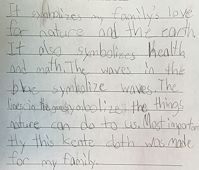 It symbolizes my family's love
for nature and the earth
It also symbolizes health
and math. The waves in the
blue symbolize waves. The
lines in the symbolizes the things
nature can do to us. Most important
tly this kente cloth was made
for my family.